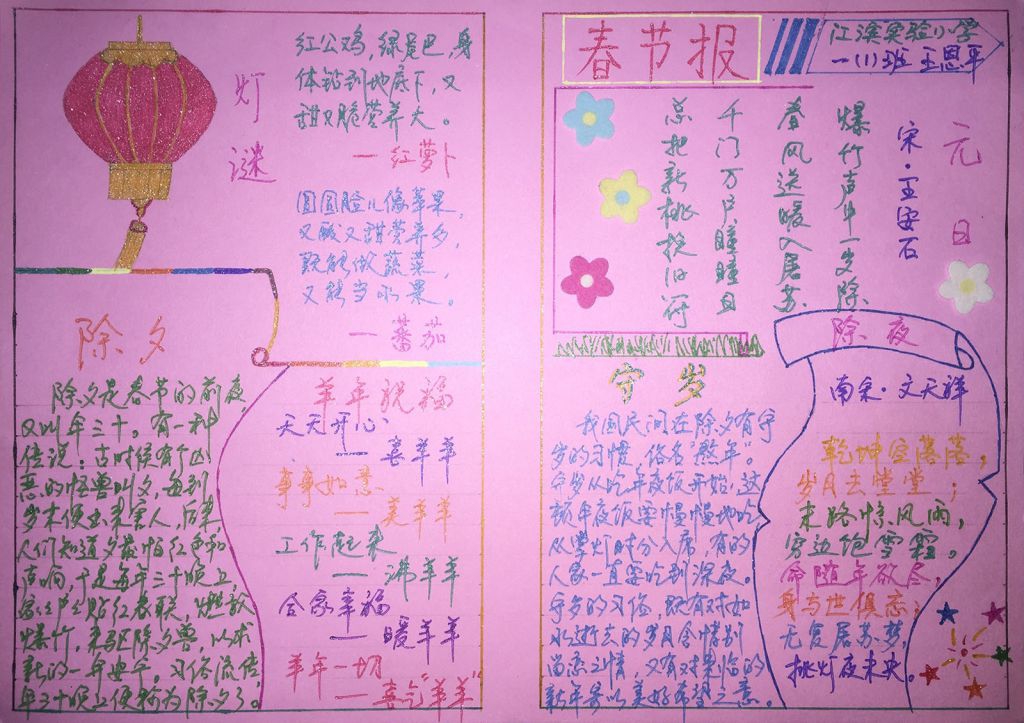 灯谜
红公鸡,绿尾巴,身
体钻到地底下,又
甜又脆营养大。
一红萝卜
圆圆脸儿像苹果,
又酸又甜营养多,
既能做蔬菜,
又能当水果。
一蕃茄
除夕
除夕是春节的前夜,
又叫年三十。有一种
传说:古时候有个凶
恶的怪兽叫夕,每到
岁末便出来害人,后来
人们知道夕最怕红色和
声响,于是每年三十晚上,
家家户户贴红春联,燃放
爆竹,来驱除夕兽,以求
新的一年安宁。习俗流传
年三十晚上便称为除夕了。
羊年祝福
天天开心
一喜羊羊
事事如意
一美羊羊
工作起来
一沸羊羊
合家幸福
一暖羊羊
羊年一切
一喜气"羊羊"
春节报
江滨实验小学
一(1)班 王恩平
元日
宋·王安石
爆竹声中一岁除
春风送暖入屠苏
千门万户瞳瞳日
总把新桃换旧符
守岁
我国民间在除夕有守
岁的习惯,俗名"熬年"。
守岁从吃年夜饭开始,这
顿年夜饭要慢慢地吃
从掌灯时分入席,有的
人家一直要吃到深夜。
守岁的习俗,既有对如
水逝去的岁月含惜别
留恋之情,又有对来临的
新年寄以美好希望之意。
除夜
南宋·文天祥
乾坤空落落,
岁月去堂堂;
末路惊风雨,
穷边饱雪霜。
命随年欲尽,
身与世俱忘;
无复屠苏梦,
挑灯夜未央。